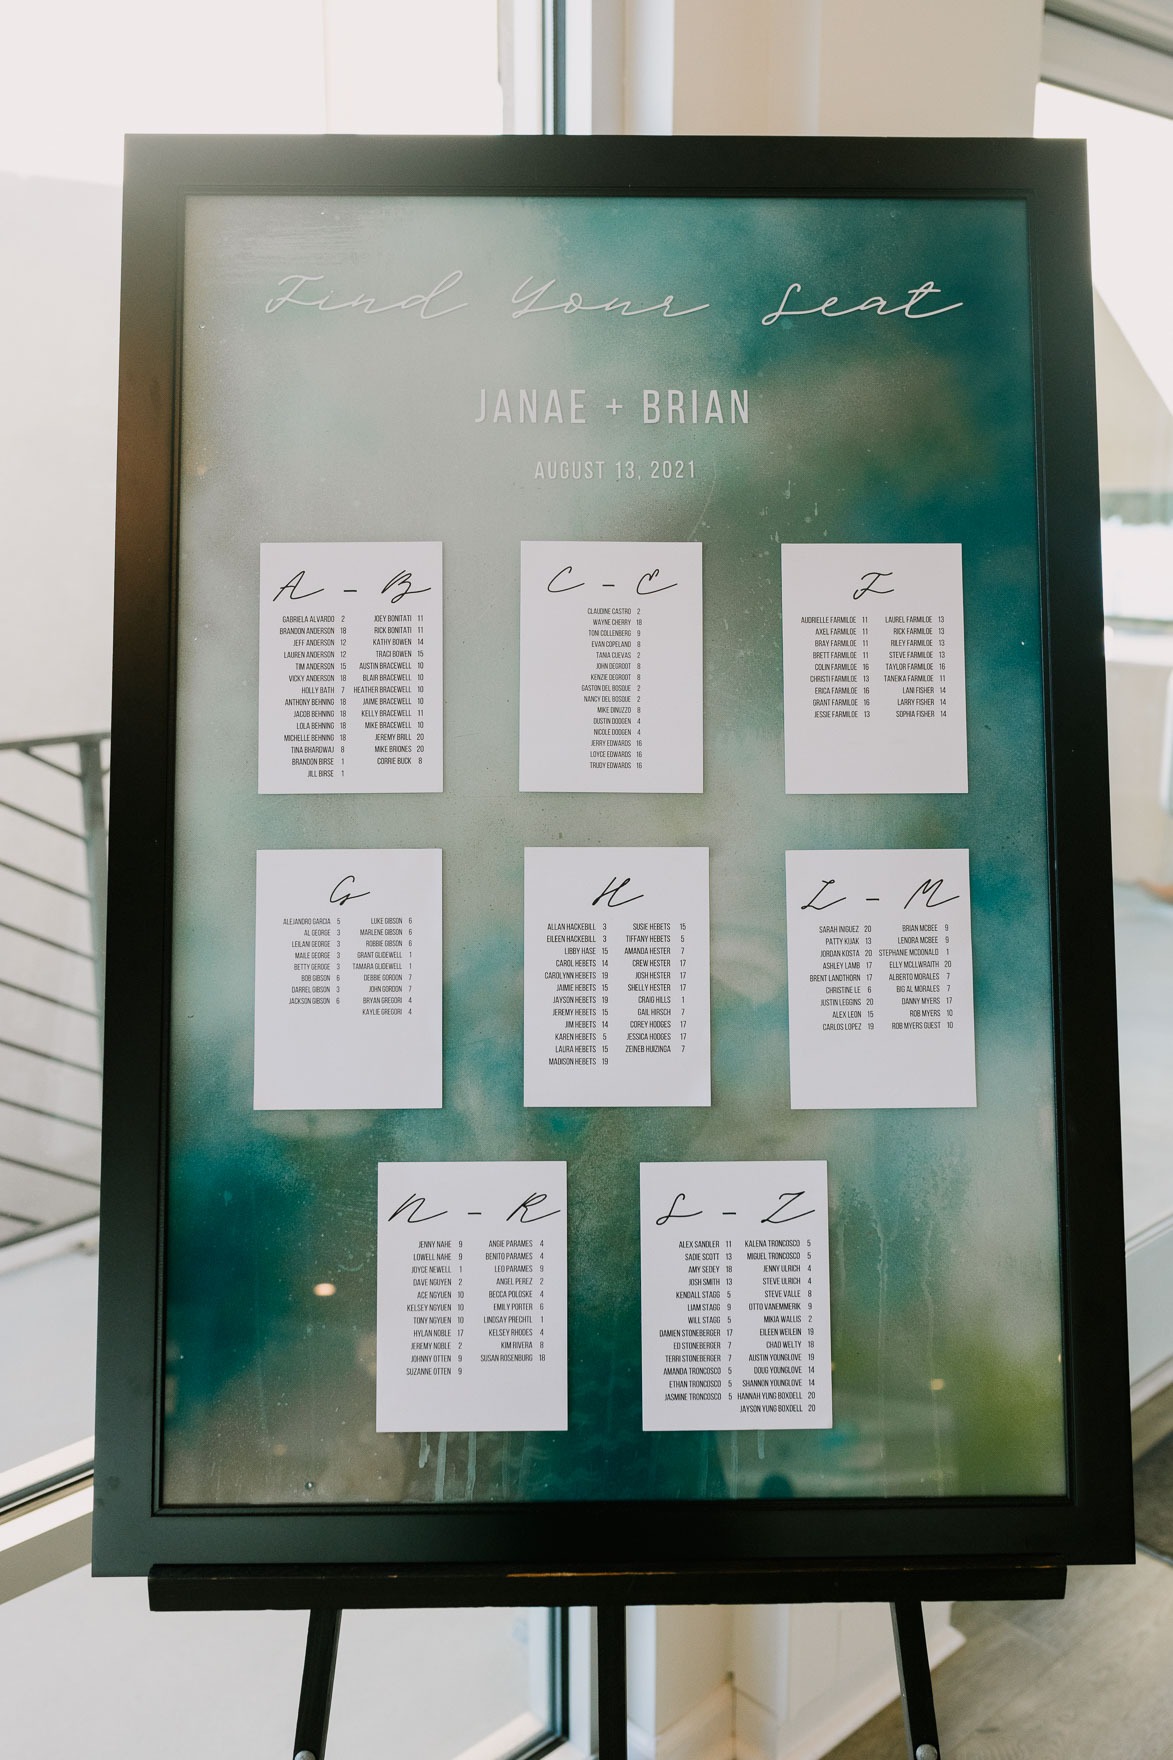 Find Your Seat
JANAE + BRIAN
AUGUST 13, 2021
A - B
GABRIELA ALVARDO 2
BRANDON ANDERSON 18
JEFF ANDERSON 12
LAUREN ANDERSON 12
TIM ANDERSON 15
VICKY ANDERSON 18
HOLLY BATH 7
ANTHONY BEHNING 18
JACOB BEHNING 18
LOLA BEHNING 18
MICHELLE BEHNING 18
TINA BHARDWAJ 8
BRANDON BIRSE 1
JILL BIRSE 1
JOEY BONITATI 11
RICK BONITATI 11
KATHY BOWEN 14
TRACI BOWEN 15
AUSTIN BRACEWELL 10
BLAIR BRACEWELL 10
HEATHER BRACEWELL 10
JAIME BRACEWELL 10
KELLY BRACEWELL 11
MIKE BRACEWELL 10
JEREMY BRILL 20
MIKE BRIONES 20
CORRIE BUCK 8
C - E
CLAUDINE CASTRO 2
WAYNE CHERRY 18
TONI COLLENBERG 9
EVAN COPELAND 8
TANIA CUEVAS 2
JOHN DEGROOT 8
KENZIE DEGROOT 8
GASTON DEL BOSQUE 2
NANCY DEL BOSQUE 2
MIKE DINUZZO 8
DUSTIN DODGEN 4
NICOLE DODGEN 4
JERRY EDWARDS 16
LOYCE EDWARDS 16
TRUDY EDWARDS 16
F
AUDRIELLE FARMILOE 11
AXEL FARMILOE 11
BRAY FARMILOE 11
BRETT FARMILOE 11
COLIN FARMILOE 16
CHRISTI FARMILOE 13
ERICA FARMILOE 16
GRANT FARMILOE 16
JESSIE FARMILOE 13
LAUREL FARMILOE 13
RICK FARMILOE 13
RILEY FARMILOE 13
STEVE FARMILOE 13
TAYLOR FARMILOE 16
TANEIKA FARMILOE 11
LANI FISHER 14
LARRY FISHER 14
SOPHIA FISHER 14
G
ALEJANDRO GARCIA 5
AL GEORGE 3
LEILANI GEORGE 3
MAILE GEORGE 3
BETTY GEROGE 3
BOB GIBSON 6
DARREL GIBSON 3
JACKSON GIBSON 6
LUKE GIBSON 6
MARLENE GIBSON 6
ROBBIE GIBSON 6
GRANT GLIDEWELL 1
TAMARA GLIDEWELL 1
DEBBIE GORDON 7
JOHN GORDON 7
BRYAN GREGORI 4
KAYLIE GREGORI 4
H
ALLAN HACKEBILL 3
EILEEN HACKEBILL 3
LIBBY HASE 15
CAROL HEBETS 14
CAROLYNN HEBETS 19
JAIMIE HEBETS 15
JAYSON HEBETS 19
JEREMY HEBETS 15
JIM HEBETS 14
KAREN HEBETS 5
LAURA HEBETS 15
MADISON HEBETS 19
SUSIE HEBETS 15
TIFFANY HEBETS 5
AMANDA HESTER 7
CREW HESTER 17
JOSH HESTER 17
SHELLY HESTER 17
CRAIG HILLS 1
GAIL HIRSCH 7
COREY HODGES 17
JESSICA HODGES 17
ZEINEB HUIZINGA 7
I - M
SARAH INIGUEZ 20
PATTY KIJAK 13
JORDAN KOSTA 20
ASHLEY LAMB 17
BRENT LANDTHORN 17
CHRISTINE LE 6
JUSTIN LEGGINS 20
ALEX LEON 15
CARLOS LOPEZ 19
BRIAN MCBEE 9
LENORA MCBEE 9
STEPHANIE MCDONALD 1
ELLY MCLLWRAITH 20
ALBERTO MORALES 7
BIG AL MORALES 7
DANNY MYERS 17
ROB MYERS 10
ROB MYERS GUEST 10
N - R
JENNY NAHE 9
LOWELL NAHE 9
JOYCE NEWELL 1
DAVE NGUYEN 2
ACE NGYUEN 10
KELSEY NGYUEN 10
TONY NGYUEN 10
HYLAN NOBLE 17
JEREMY NOBLE 2
JOHNNY OTTEN 9
SUZANNE OTTEN 9
ANGIE PARAMES 4
BENITO PARAMES 4
LEO PARAMES 9
ANGEL PEREZ 2
BECCA POLOSKE 4
EMILY PORTER 6
LINDSAY PRECHTL 1
KELSEY RHODES 4
KIM RIVERA 8
SUSAN ROSENBURG 18
S - Z
ALEX SANDLER 11
SADIE SCOTT 13
AMY SEDEY 18
JOSH SMITH 13
KENDALL STAGG 5
LIAM STAGG 9
WILL STAGG 5
DAMIEN STONEBERGER 17
ED STONEBERGER 7
TERRI STONEBERGER 7
AMANDA TRONCOSCO 5
ETHAN TRONCOSCO 5
JASMINE TRONCOSCO 5
KALENA TRONCOSCO 5
MIGUEL TRONCOSCO 5
JENNY ULRICH 4
STEVE ULRICH 4
STEVE VALLE 8
OTTO VANEMMERIK 9
MIKIA WALLIS 2
EILEEN WEILEIN 19
CHAD WELTY 18
AUSTIN YOUNGLOVE 19
DOUG YOUNGLOVE 14
SHANNON YOUNGLOVE 14
HANNAH YUNG BOXDELL 20
JAYSON YUNG BOXDELL 20